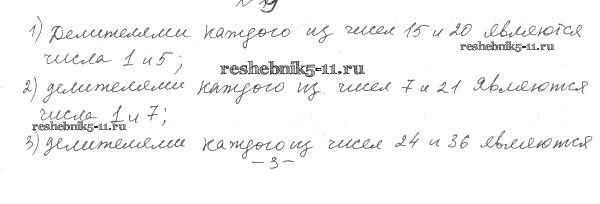 № 19
1) Делителями каждого из чисел 15 и 20 являются
reshebnik5-11.ru
числа 1 и 5;
reshebnik5-11.ru
2) делителями каждого из чисел 7 и 21 являются
числа 1 и 7;
reshebnik5-11.ru
3) делителями каждого из чисел 24 и 36 являются
– 3 –